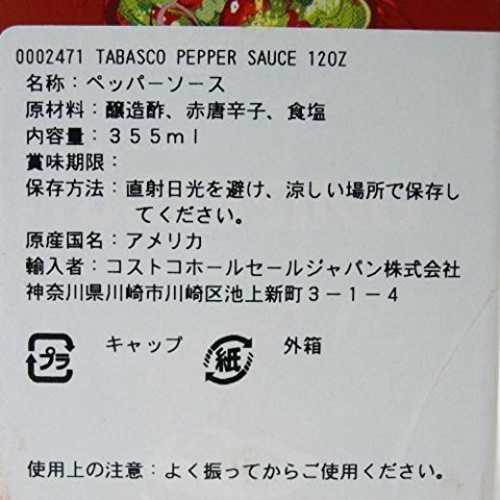 0002471 TABASCO PEPPER SAUCE 12OZ
名称：ペッパーソース
原材料：醸造酢、赤唐辛子、食塩
内容量：３５５ｍｌ
賞味期限：
保存方法：直射日光を避け、涼しい場所で保存し
てください。
原産国名：アメリカ
輸入者：コストコホールセールジャパン株式会社
神奈川県川崎市川崎区池上新町３－１－４
プラ キャップ 紙 外箱
使用上の注意：よく振ってからご使用ください。